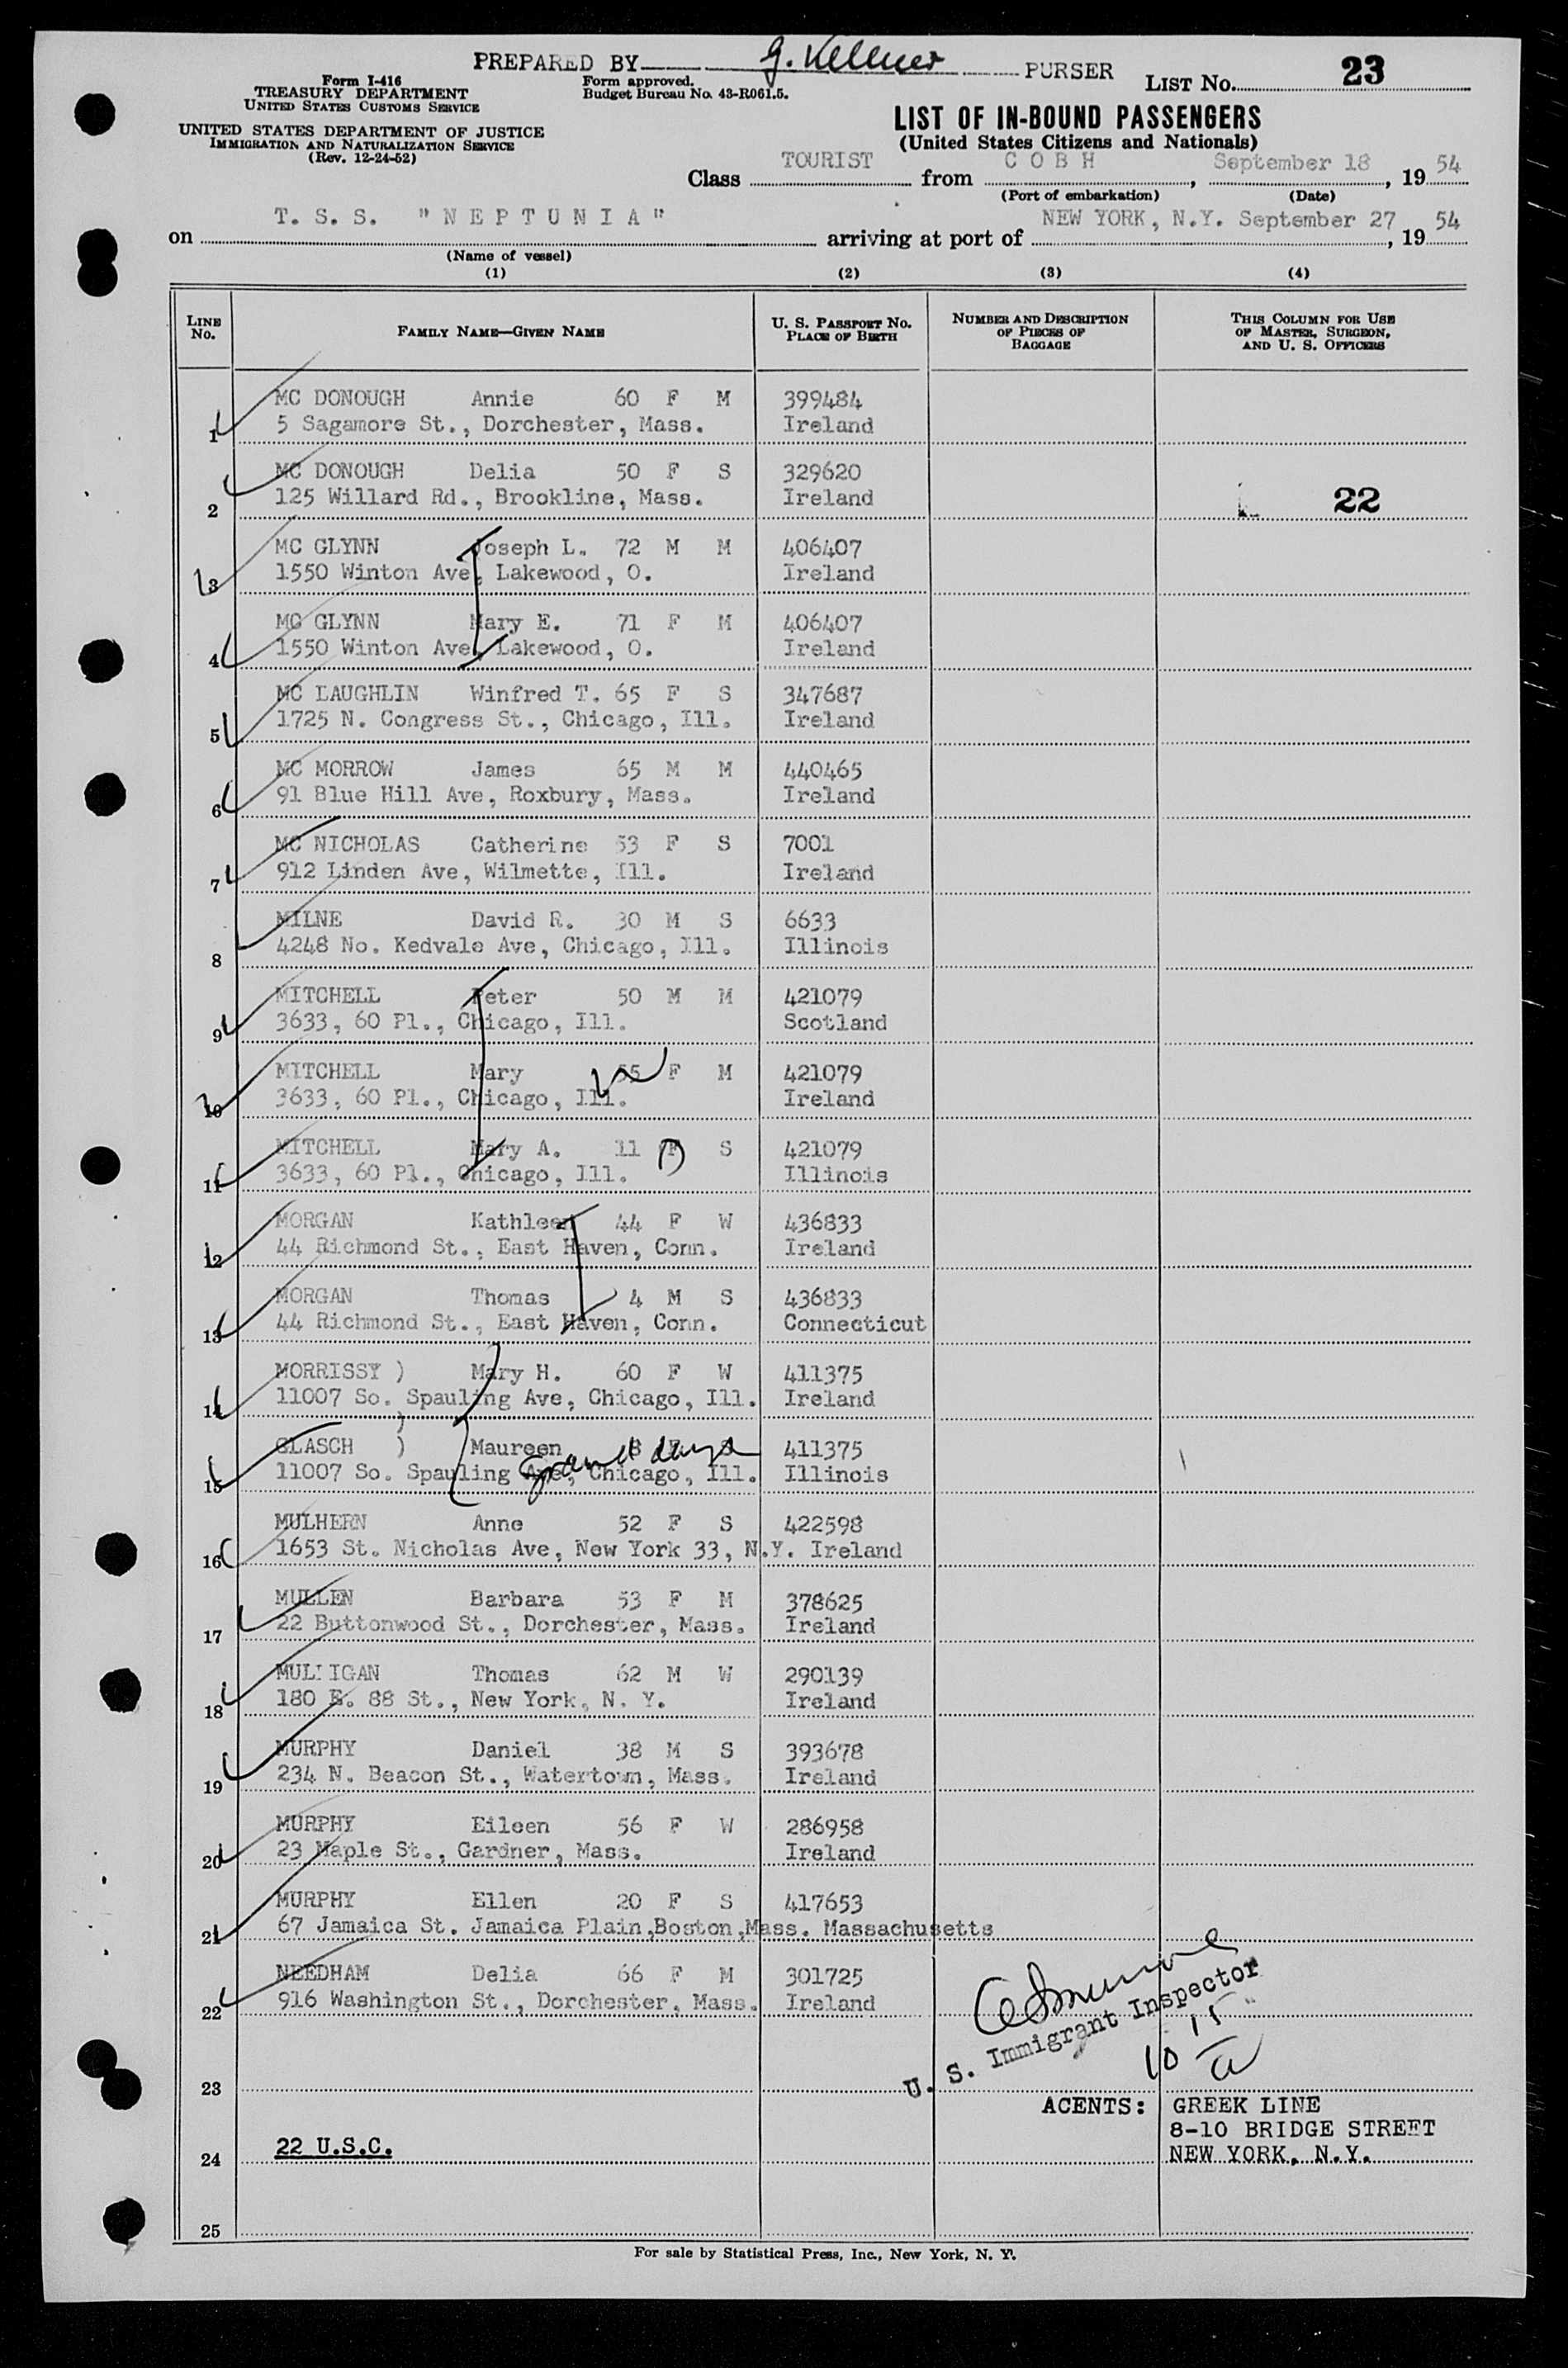 PREPARED BY G. Kellner PURSER
LIST No. 23
Form I-416
TREASURY DEPARTMENT
UNITED STATES CUSTOMS SERVICE
Form approved.
Budget Bureau No. 43-R061.5.
UNITED STATES DEPARTMENT OF JUSTICE
IMMIGRATION AND NATURALIZATION SERVICE
(Rev. 12-24-52)
LIST OF IN-BOUND PASSENGERS
(United States Citizens and Nationals)
Class TOURIST from C O B H, September 18, 19 54
(Port of embarkation) (Date)
on T. S. S. "N E P T U N I A" arriving at port of NEW YORK, N.Y. September 27, 19 54
(Name of vessel)
(1) (2) (3) (4)
LINE No. FAMILY NAME—GIVEN NAME U. S. PASSPORT No. PLACE OF BIRTH NUMBER AND DESCRIPTION OF PIECES OF BAGGAGE THIS COLUMN FOR USE OF MASTER, SURGEON, AND U. S. OFFICERS
MC DONOUGH Annie 60 F M 399484
1 5 Sagamore St., Dorchester, Mass. Ireland
MC DONOUGH Delia 50 F S 329620
2 125 Willard Rd., Brookline, Mass. Ireland 22
MC GLYNN Joseph L. 72 M M 406407
3 1550 Winton Ave, Lakewood, O. Ireland
MC GLYNN Mary E. 71 F M 406407
4 1550 Winton Ave, Lakewood, O. Ireland
MC LAUGHLIN Winfred T. 65 F S 347687
5 1725 N. Congress St., Chicago, Ill. Ireland
MC MORROW James 65 M M 440465
6 91 Blue Hill Ave, Roxbury, Mass. Ireland
MC NICHOLAS Catherine 53 F S 7001
7 912 Linden Ave, Wilmette, Ill. Ireland
MILNE David R. 30 M S 6633
8 4248 No. Kedvale Ave, Chicago, Ill. Illinois
MITCHELL Peter 50 M M 421079
9 3633, 60 Pl., Chicago, Ill. Scotland
MITCHELL Mary 55 F M 421079
10 3633, 60 Pl., Chicago, Ill. Ireland
MITCHELL Mary A. 11 F S 421079
11 3633, 60 Pl., Chicago, Ill. Illinois
MORGAN Kathleen 44 F W 436833
12 44 Richmond St., East Haven, Conn. Ireland
MORGAN Thomas 4 M S 436833
13 44 Richmond St., East Haven, Conn. Connecticut
MORRISSY ) Mary H. 60 F W 411375
14 11007 So. Spauling Ave, Chicago, Ill. Ireland
)
GLASCH ) Maureen 8 F S 411375
15 11007 So. Spauling Ave, Chicago, Ill. Illinois
MULHERN Anne 52 F S 422598
16 1653 St. Nicholas Ave, New York 33, N.Y. Ireland
MULLEN Barbara 53 F M 378625
17 22 Buttonwood St., Dorchester, Mass. Ireland
MULLIGAN Thomas 62 M W 290139
18 180 E. 88 St., New York, N. Y. Ireland
MURPHY Daniel 38 M S 393678
19 234 N. Beacon St., Watertown, Mass. Ireland
MURPHY Eileen 56 F W 286958
20 23 Maple St., Gardner, Mass. Ireland
MURPHY Ellen 20 F S 417653
21 67 Jamaica St. Jamaica Plain,Boston,Mass. Massachusetts
NEEDHAM Delia 66 F M 301725
22 916 Washington St., Dorchester, Mass. Ireland
U. S. Immigrant Inspector
10 15 a
23
AGENTS: GREEK LINE
8-10 BRIDGE STREET
24 22 U.S.C. NEW YORK, N.Y.
25
For sale by Statistical Press, Inc., New York, N. Y.